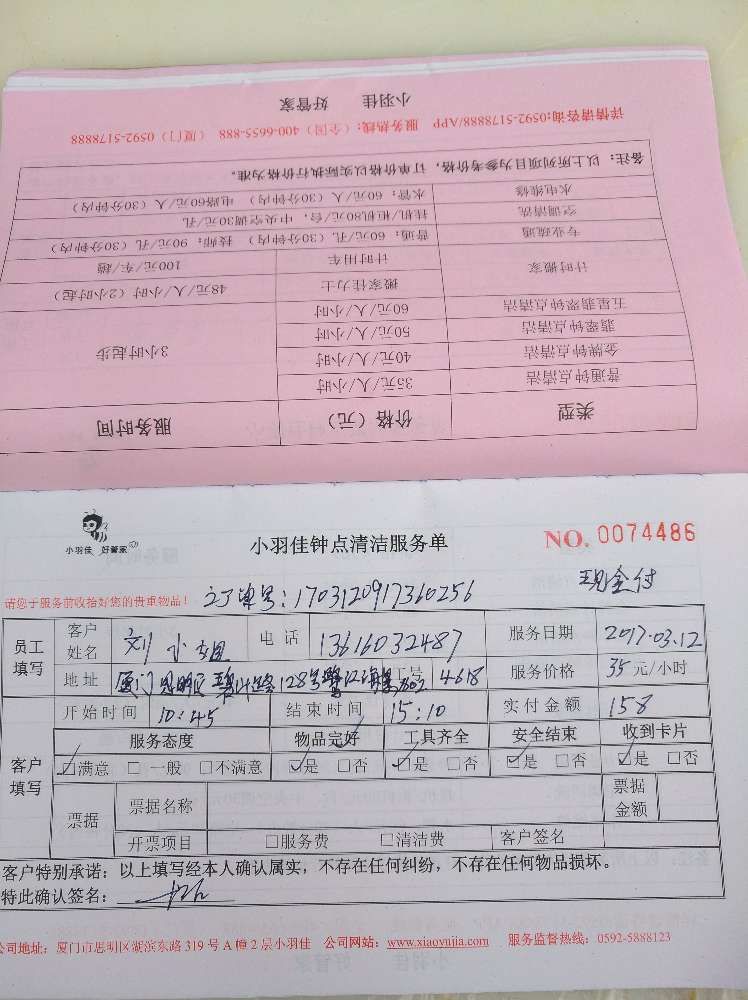 小羽佳 好管家
详情请咨询:0592-5178888/APP 服务热线:(全国)400-6655-888 (厦门)0592-5178888
备注:以上所列项目为参考价格,订单价格以实际执行价格为准。
水电维修 水管:60元/人(30分钟内) 电路60元/人(30分钟内)
空调清洗 挂机,柜机80元/台,中央空调30元/孔
专业疏通 普通:60元/孔(30分钟内) 技师:90元/孔(30分钟内)
计时搬家 计时用车 100元/车/趟
搬家佳力士 48元/人/小时(2小时起)
五星翡翠钟点清洁 60元/人/小时 3小时起步
翡翠钟点清洁 50元/人/小时
金牌钟点清洁 40元/人/小时
普通钟点清洁 35元/人/小时
类型 价格(元) 服务时间
小羽佳 好管家
小羽佳钟点清洁服务单 NO. 0074486
请您于服务前收拾好您的贵重物品! 订单号:1703120917360256 现金付
员工填写 客户姓名 刘小姐 电话 13616032487 服务日期 2017.03.12
地址 厦门思明区 128号鹭江海景 工号 4618 服务价格 35元/小时
开始时间 10:45 结束时间 15:10 实付金额 158
客户填写 服务态度 物品完好 工具齐全 安全结束 收到卡片
☑满意 □一般 □不满意 ☑是 □否 ☑是 □否 ☑是 □否 ☑是 □否
票据 票据名称 票据金额
开票项目 □服务费 □清洁费 客户签名
客户特别承诺:以上填写经本人确认属实,不存在任何纠纷,不存在任何物品损坏。
特此确认签名:
公司地址:厦门市思明区湖滨东路319号A幢2层小羽佳 公司网站:www.xiaoyujia.com 服务监督热线:0592-5888123